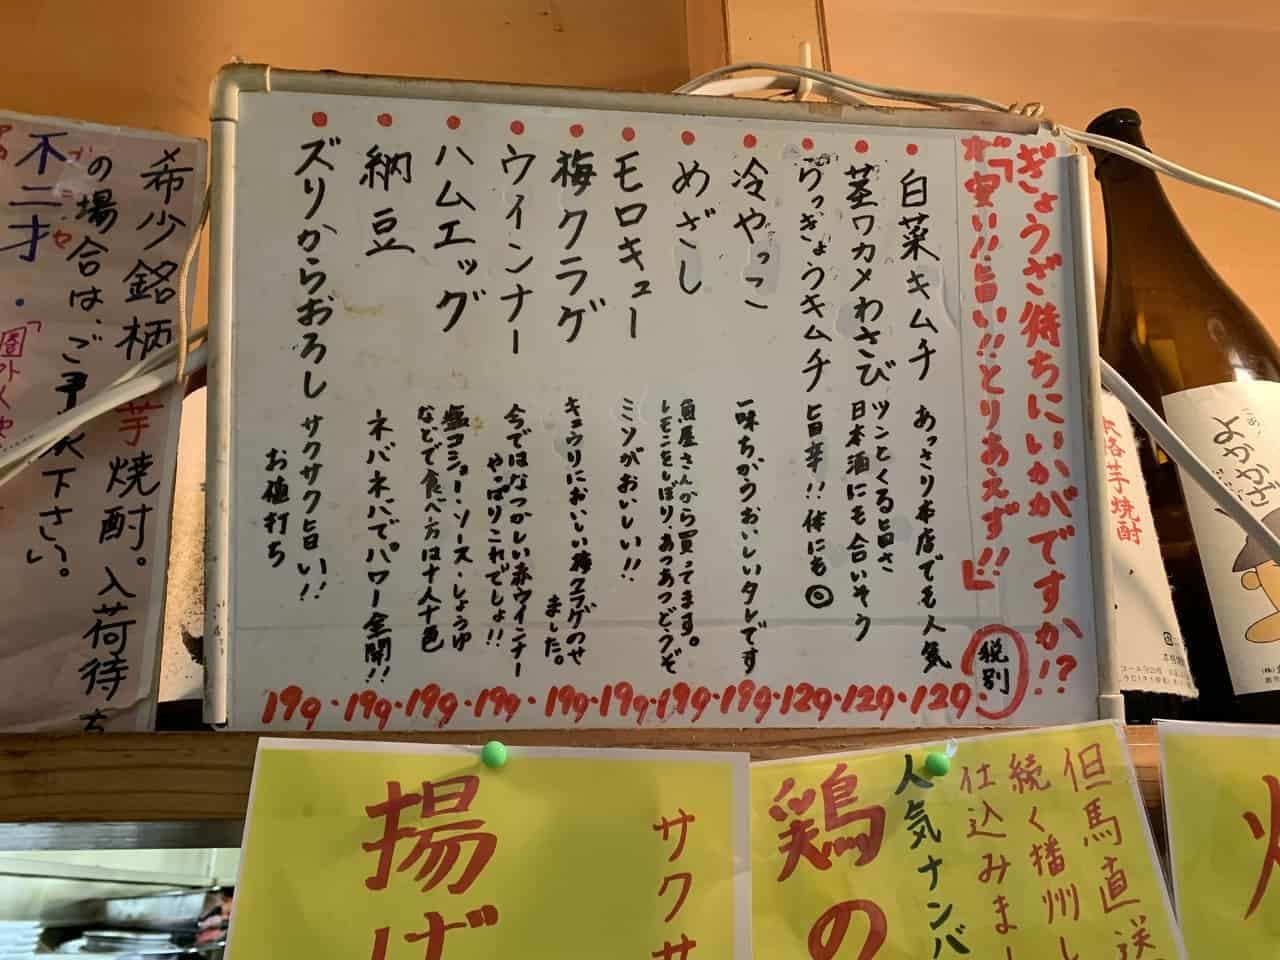 ぎょうざ待ちにいかがですか!?
が「安い!!旨い!!とりあえず!!」
税別
白菜キムチ あっさり本店でも人気 129.
茎ワカメわさび ツンとくる旨さ
日本酒にも合いそう 129.
らっきょうキムチ 旨辛!!体にも◎ 129.
冷やっこ 一味ちがうおいしいタレです 199.
めざし 魚屋さんから買ってます。
レモンをしぼり、あつあつどうぞ 199.
モロキュー ミソがおいしい!! 199.
梅クラゲ キュウリにおいしい梅クラゲのせ
ました。 199.
ウインナー 今ではなつかしい赤ウインナー
やっぱりこれでしょ!! 199.
ハムエッグ 塩コショー・ソース・しょうゆ
などで食べ方は十人十色 199.
納豆 ネバネバでパワー全開!! 199.
ズリからおろし サクサク旨い!
お値打ち 199.
希少銘柄芋焼酎。入荷待ち
の場合は、ご了承下さい。
不二才・
本格芋焼酎
よかかぜ
揚げ
サクサ
鶏の
人気ナンバ
但馬直送
続く播州し
仕込みまし